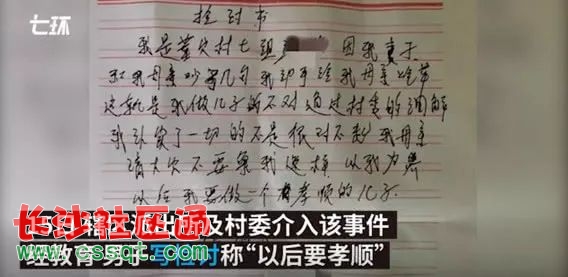 七环
讨书
我是村七组 因我妻子
和我母亲吵了几句我动手给我母亲
这就是我做儿子的不对通过村委的调解
我认了一切的不是很对不起我母亲
请大家不要像我这样 以我为
以后我要做一个有孝顺的儿子
长沙社区通
辖区派出所及村委介入该事件
www.cssqt.com
经教育 男子写检讨称“以后要孝顺”